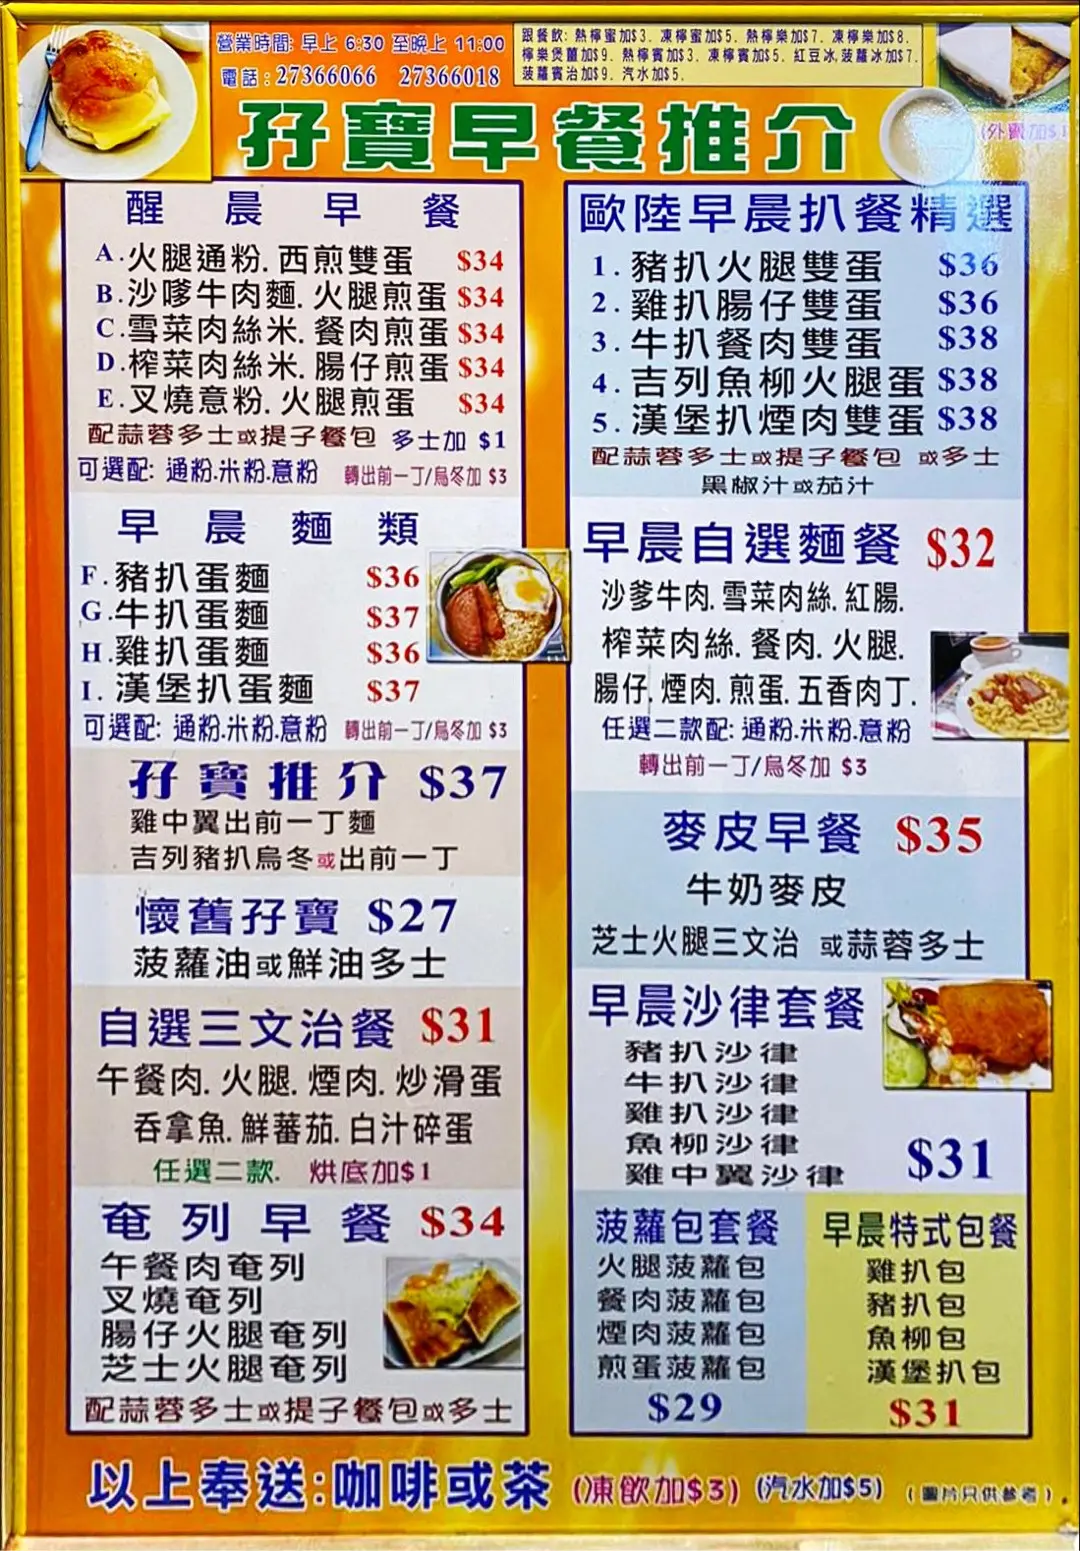 營業時間: 早上 6:30 至晚上 11:00
電話：27366066 27366018
跟餐飲: 熱檸蜜加$3. 凍檸蜜加$5. 熱檸樂加$7. 凍檸樂加$8.
檸樂煲薑加$9. 熱檸賓加$3. 凍檸賓加$5. 紅豆冰,菠蘿冰加$7.
菠蘿賓治加$9. 汽水加$5.
孖寶早餐推介
(外賣加$1)
醒晨早餐
A.火腿通粉. 西煎雙蛋 $34
B.沙嗲牛肉麵. 火腿煎蛋 $34
C.雪菜肉絲米. 餐肉煎蛋 $34
D.榨菜肉絲米. 腸仔煎蛋 $34
E.叉燒意粉. 火腿煎蛋 $34
配蒜蓉多士或提子餐包 多士加 $1
可選配: 通粉.米粉.意粉 轉出前一丁/烏冬加 $3
早晨麵類
F.豬扒蛋麵 $36
G.牛扒蛋麵 $37
H.雞扒蛋麵 $36
I.漢堡扒蛋麵 $37
可選配: 通粉.米粉.意粉 轉出前一丁/烏冬加 $3
孖寶推介 $37
雞中翼出前一丁麵
吉列豬扒烏冬或出前一丁
懷舊孖寶 $27
菠蘿油或鮮油多士
自選三文治餐 $31
午餐肉. 火腿. 煙肉. 炒滑蛋
吞拿魚. 鮮蕃茄. 白汁碎蛋
任選二款. 烘底加$1
奄列早餐 $34
午餐肉奄列
叉燒奄列
腸仔火腿奄列
芝士火腿奄列
配蒜蓉多士或提子餐包或多士
歐陸早晨扒餐精選
1.豬扒火腿雙蛋 $36
2.雞扒腸仔雙蛋 $36
3.牛扒餐肉雙蛋 $38
4.吉列魚柳火腿蛋 $38
5.漢堡扒煙肉雙蛋 $38
配蒜蓉多士或提子餐包 或多士
黑椒汁或茄汁
早晨自選麵餐 $32
沙爹牛肉. 雪菜肉絲. 紅腸.
榨菜肉絲. 餐肉. 火腿.
腸仔. 煙肉. 煎蛋. 五香肉丁.
任選二款配: 通粉.米粉.意粉
轉出前一丁/烏冬加 $3
麥皮早餐 $35
牛奶麥皮
芝士火腿三文治 或蒜蓉多士
早晨沙律套餐
豬扒沙律
牛扒沙律
雞扒沙律
魚柳沙律
雞中翼沙律 $31
菠蘿包套餐
火腿菠蘿包
餐肉菠蘿包
煙肉菠蘿包
煎蛋菠蘿包
$29
早晨特式包餐
雞扒包
豬扒包
魚柳包
漢堡扒包
$31
以上奉送:咖啡或茶 (凍飲加$3) (汽水加$5) (圖片只供參考).